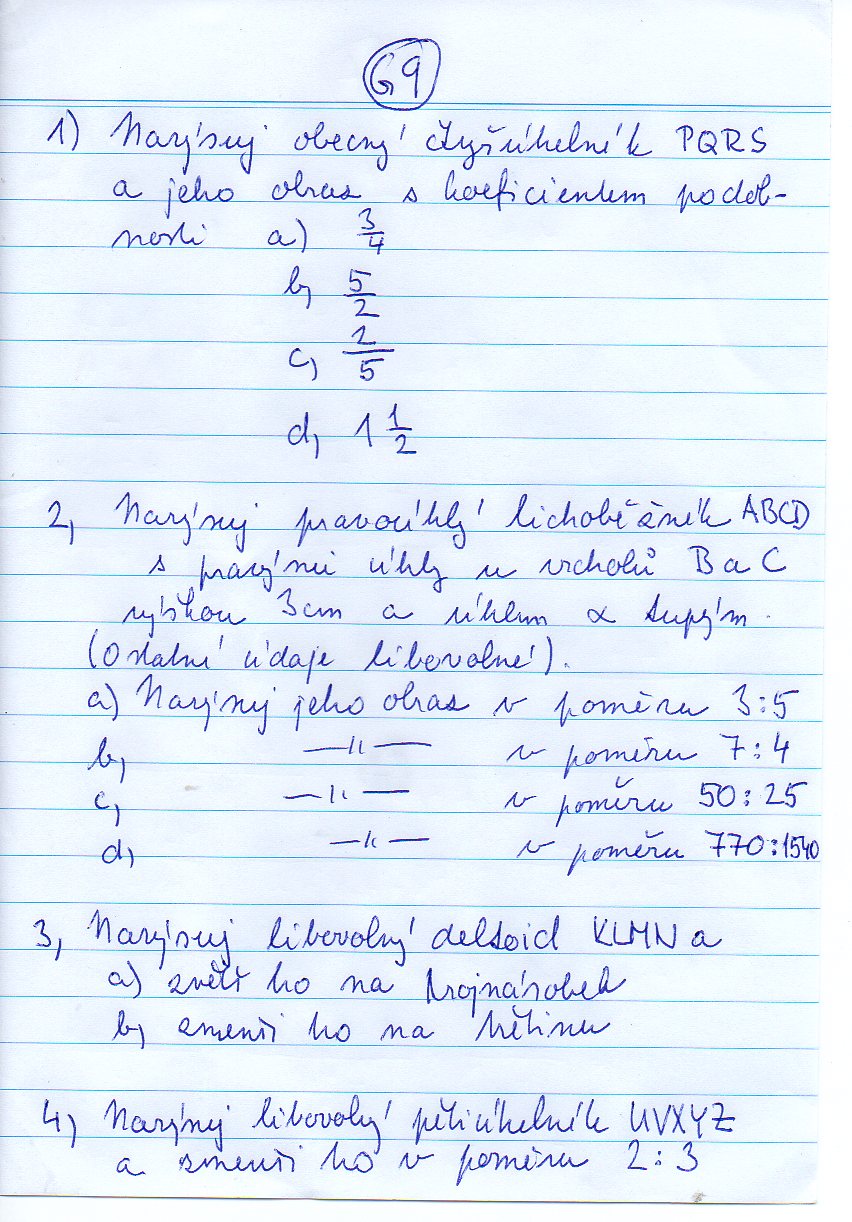 G9
1) Narýsuj obecný čtyřúhelník PQRS
a jeho obraz s koeficientem podob-
nosti a) 3/4
b) 5/2
c) 2/5
d) 1 1/2
2) Narýsuj pravoúhlý lichoběžník ABCD
s pravými úhly u vrcholů B a C
výškou 3cm a úhlem α tupým.
(Ostatní údaje libovolné).
a) Narýsuj jeho obraz v poměru 3:5
b) —||— v poměru 7:4
c) —||— v poměru 50:25
d) —||— v poměru 770:1540
3) Narýsuj libovolný deltoid KLMN a
a) zvětši ho na trojnásobek
b) zmenši ho na třetinu
4) Narýsuj libovolný pětiúhelník UVXYZ
a zmenši ho v poměru 2:3